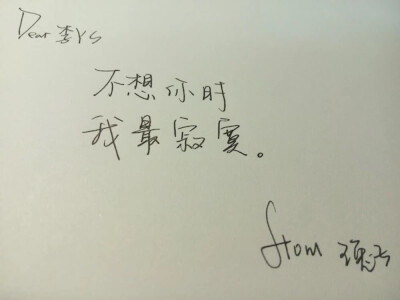 Dear 李YS
不想你时
我最寂寞。
from